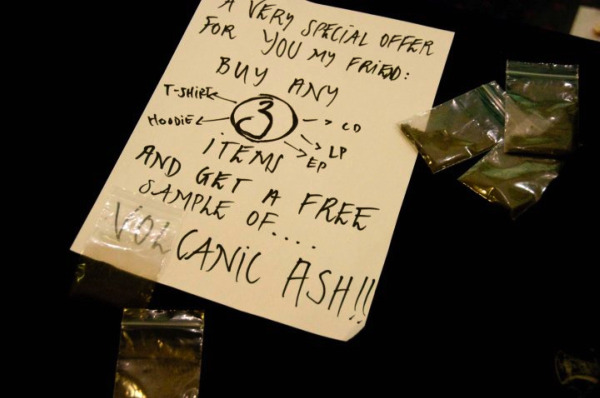 A VERY SPECIAL OFFER
FOR YOU MY FRIEND:
BUY ANY
T-SHIRT
HOODIE
3
CD
LP
EP
ITEMS
AND GET A FREE
SAMPLE OF....
VOLCANIC ASH!!